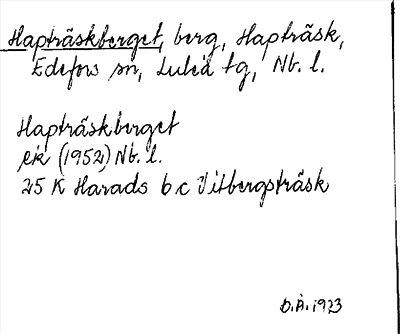 Hapträskberget, berg, Hapträsk,
Edefors sn, Luleå tg, Nb. l.
Hapträskberget
ek (1952) Nb. l.
25 K Harads b c Vitbergsträsk
D.Å. 1973